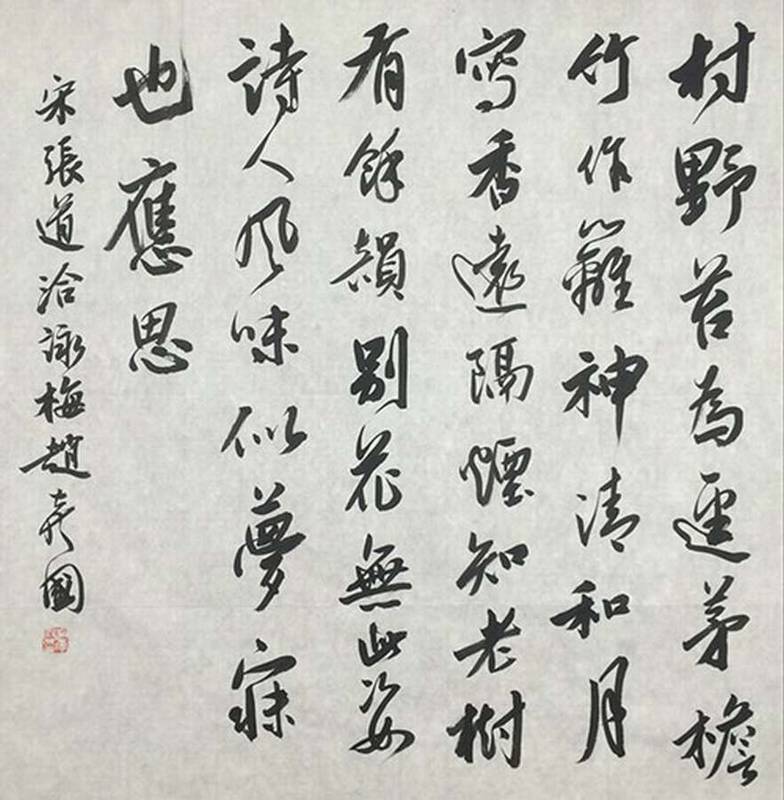 村野苔為逕茅檐
竹作籬神清和月
寫香遠隔煙知老樹
有餘韻別花無此姿
詩人風味似夢寐
也應思
宋張道洽詠梅趙國